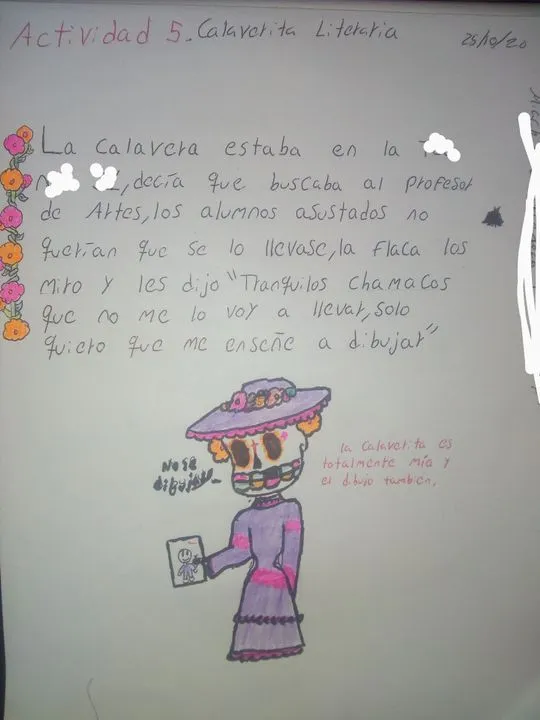 Actividad 5. Calaverita Literaria
25/10/20
La calavera estaba en la
decía que buscaba al profesor
de Artes, los alumnos asustados no
querían que se lo llevase, la flaca los
miro y les dijo "Tranquilos chamacos
que no me lo voy a llevar, solo
quiero que me enseñe a dibujar"
No se
dibujar
la calaverita es
totalmente mía y
el dibujo tambien.